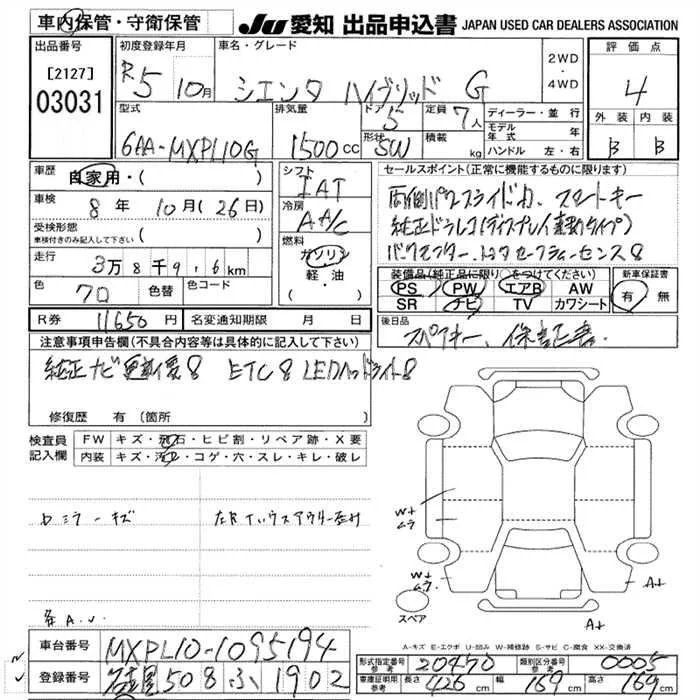 車内保管・守衛保管
JU 愛知 出品申込書 JAPAN USED CAR DEALERS ASSOCIATION
出品番号
[2127]
03031
初度登録年月
R5 10月
車名・グレード
シエンタ ハイブリッド G
2WD
・
4WD
評価点
4
外装 内装
B B
型式
6AA-MXPL10G
排気量
1500cc
ドア
5
形状
SW
定員
7人
積載
kg
ディーラー・並行
モデル年式 年
ハンドル 左・右
車歴
自家用・( )
車検
8年 10月(26日)
受検形態
車検付きのみ記入して下さい ( )
走行
3万8千9.6km
色
70
色替
色コード
シフト
IAT
冷房
AAC
燃料
ガソリン
軽油
( )
セールスポイント(正常に機能するものに限ります)
両側パワースライドドア、スマートキー
純正ドラレコ(ディスプレイ連動タイプ)
バックモニター、トヨタセーフティーセンス
装備品(純正品に限り)○をつけてください)
PS PW エアB AW
SR ナビ TV カワシート
新車保証書
有 無
R券 11650円
名変通知期限 月 日
後日品
スペアキー、保証書.
注意事項申告欄(不具合内容等は具体的に記入して下さい)
純正ナビ ETC LEDヘッドライト
修復歴 有(箇所 )
検査員記入欄
FW キズ・飛石・ヒビ割・リペア跡・X要
内装 キズ・汚れ・コゲ・穴・スレ・キレ・破レ
ミラーキズ
W+
ムラ
W+
ムラ
A+
スペア
A-キズ E-エクボ U-凹み W-補修跡 S-サビ C-腐食 XX-交換済
車台番号 MXPL10-1095194
登録番号 名古屋 508 ふ 1902
形式指定番号 参考 20470
類別区分番号 参考 0005
車庫証明用 参考 長さ 426cm 幅 169cm 高さ 169cm